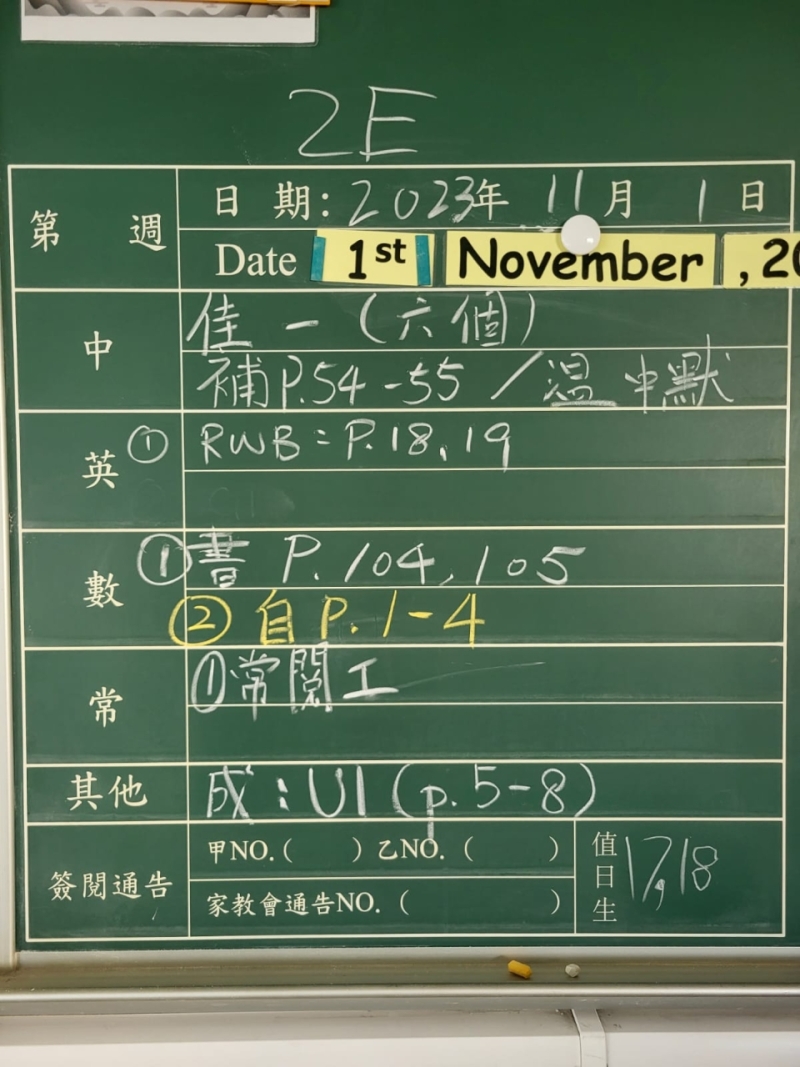 2E
第 週
日 期: 2023年 11月 1日
Date 1st November , 20
中
佳一(六個)
補P.54-55 / 温 中默
英
① RWB = P.18、19
數
① 書 P.104,105
② 自 P.1-4
常
① 常閱工
其他
成 : U1 (p.5-8)
簽閱通告
甲NO.( ) 乙NO.( )
家教會通告NO.( )
值日生
17,18